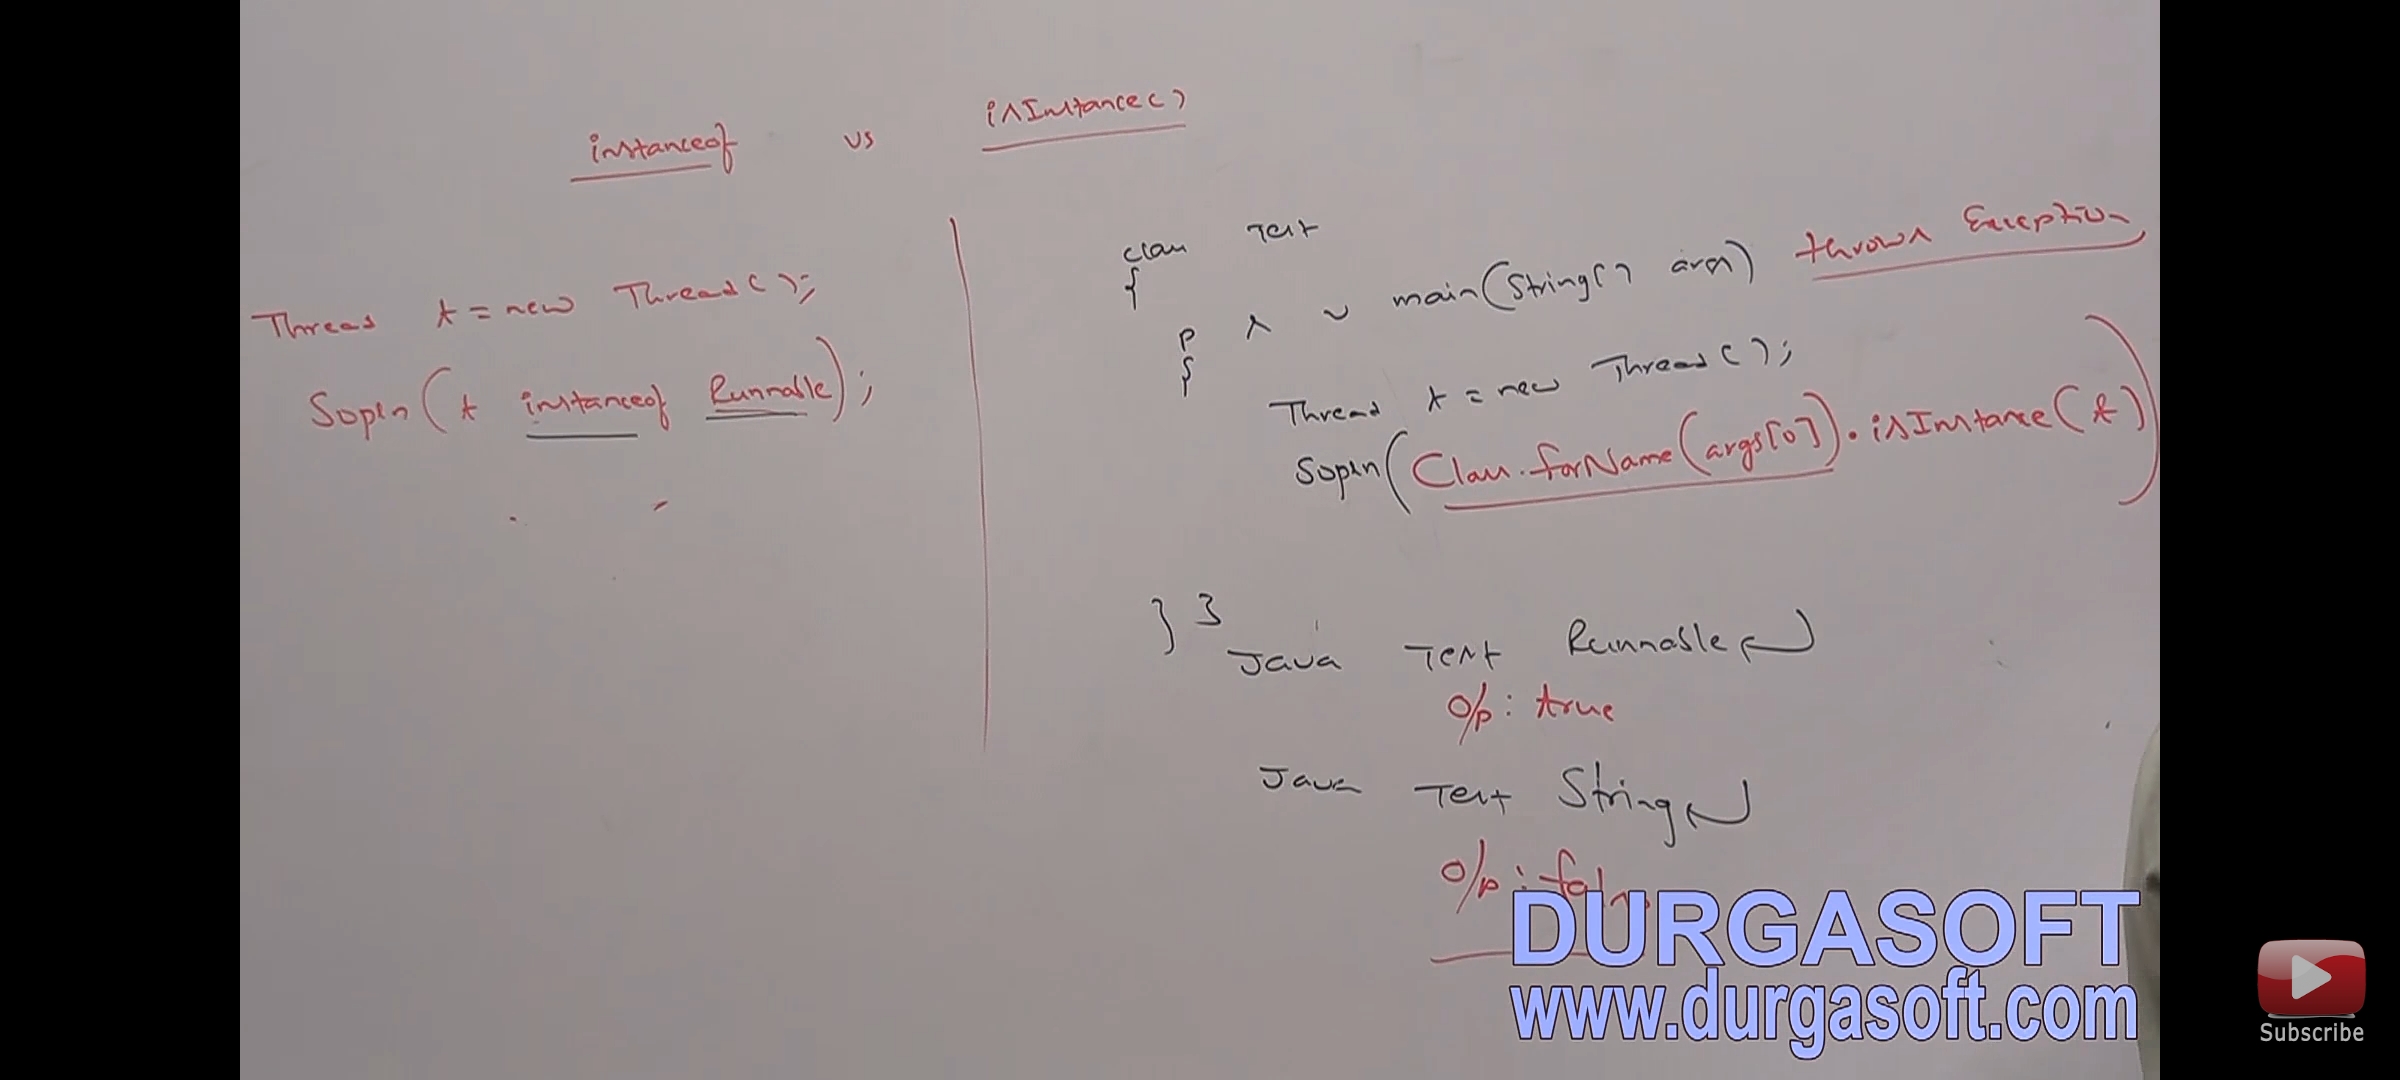 instanceof vs isInstance()
Thread t = new Thread();
Sopln(t instanceof Runnable);
class Test
{
p s v main(String[] args) throws Exception
{
Thread t = new Thread();
Sopln(Class.forName(args[0]).isInstance(t))
} }
Java Test Runnable
o/p : true
Java Test String
o/p :
DURGASOFT
www.durgasoft.com
Subscribe